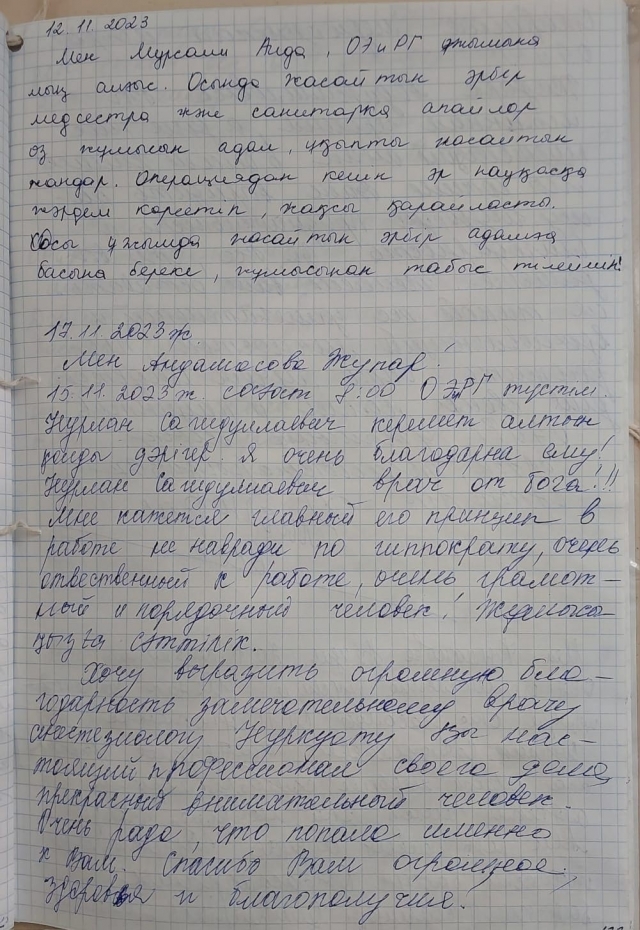 12.11.2023
Мен Мұрсали Аида, ОЭиРГ ұжымына
мың алғыс. Осында жасайтын әрбір
медсестра және санитарка апайлар
өз жұмысын адал, ұқыпты жасайтын
жандар. Операциядан кейін әр науқасқа
жәрдем көрсетіп, жақсы қарайласты.
Осы ұжымда жасайтын әрбір адамға
басына береке, жұмысынан табыс тілеймін!
17.11.2023 ж.
Мен Андамасова Жупар!
15.11.2023 ж. сағат 9:00 ОЭиРГ түстім.
Нурлан Сагидуллаевич керемет алтын
қолды дәрігер. Я очень благодарна ему!
Нурлан Сагидуллаевич врач от бога!!!
Мне кажется главный его принцип в
работе не навреди по гиппократу, очень
отвественный к работе, очень грамот-
ный и порядочный человек! Жұмысы-
ңызға сәттілік.
Хочу выразить огромную бла-
годарность замечательному врачу
анастезиологу Нуркуату Вы нас-
тоящий профессионал своего дела,
прекрасный внимательный человек.
Очень рада, что попала именно
к Вам. Спасибо Вам огромное,
здоровья и благополучия!